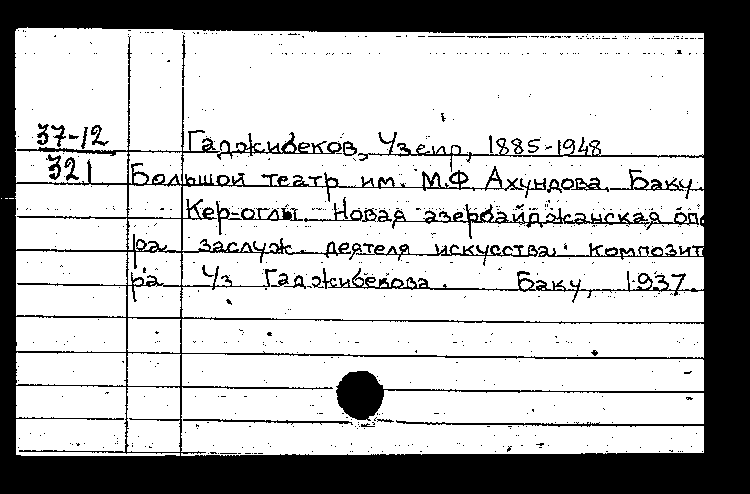 37-12
321
Гаджибеков, Узеир, 1885-1948
Большой театр им. М.Ф. Ахундова. Баку.
Кер-оглы. Новая азербайджанская опе
ра заслуж. деятеля искусства композит
ра Уз Гаджибекова. Баку, 1937.